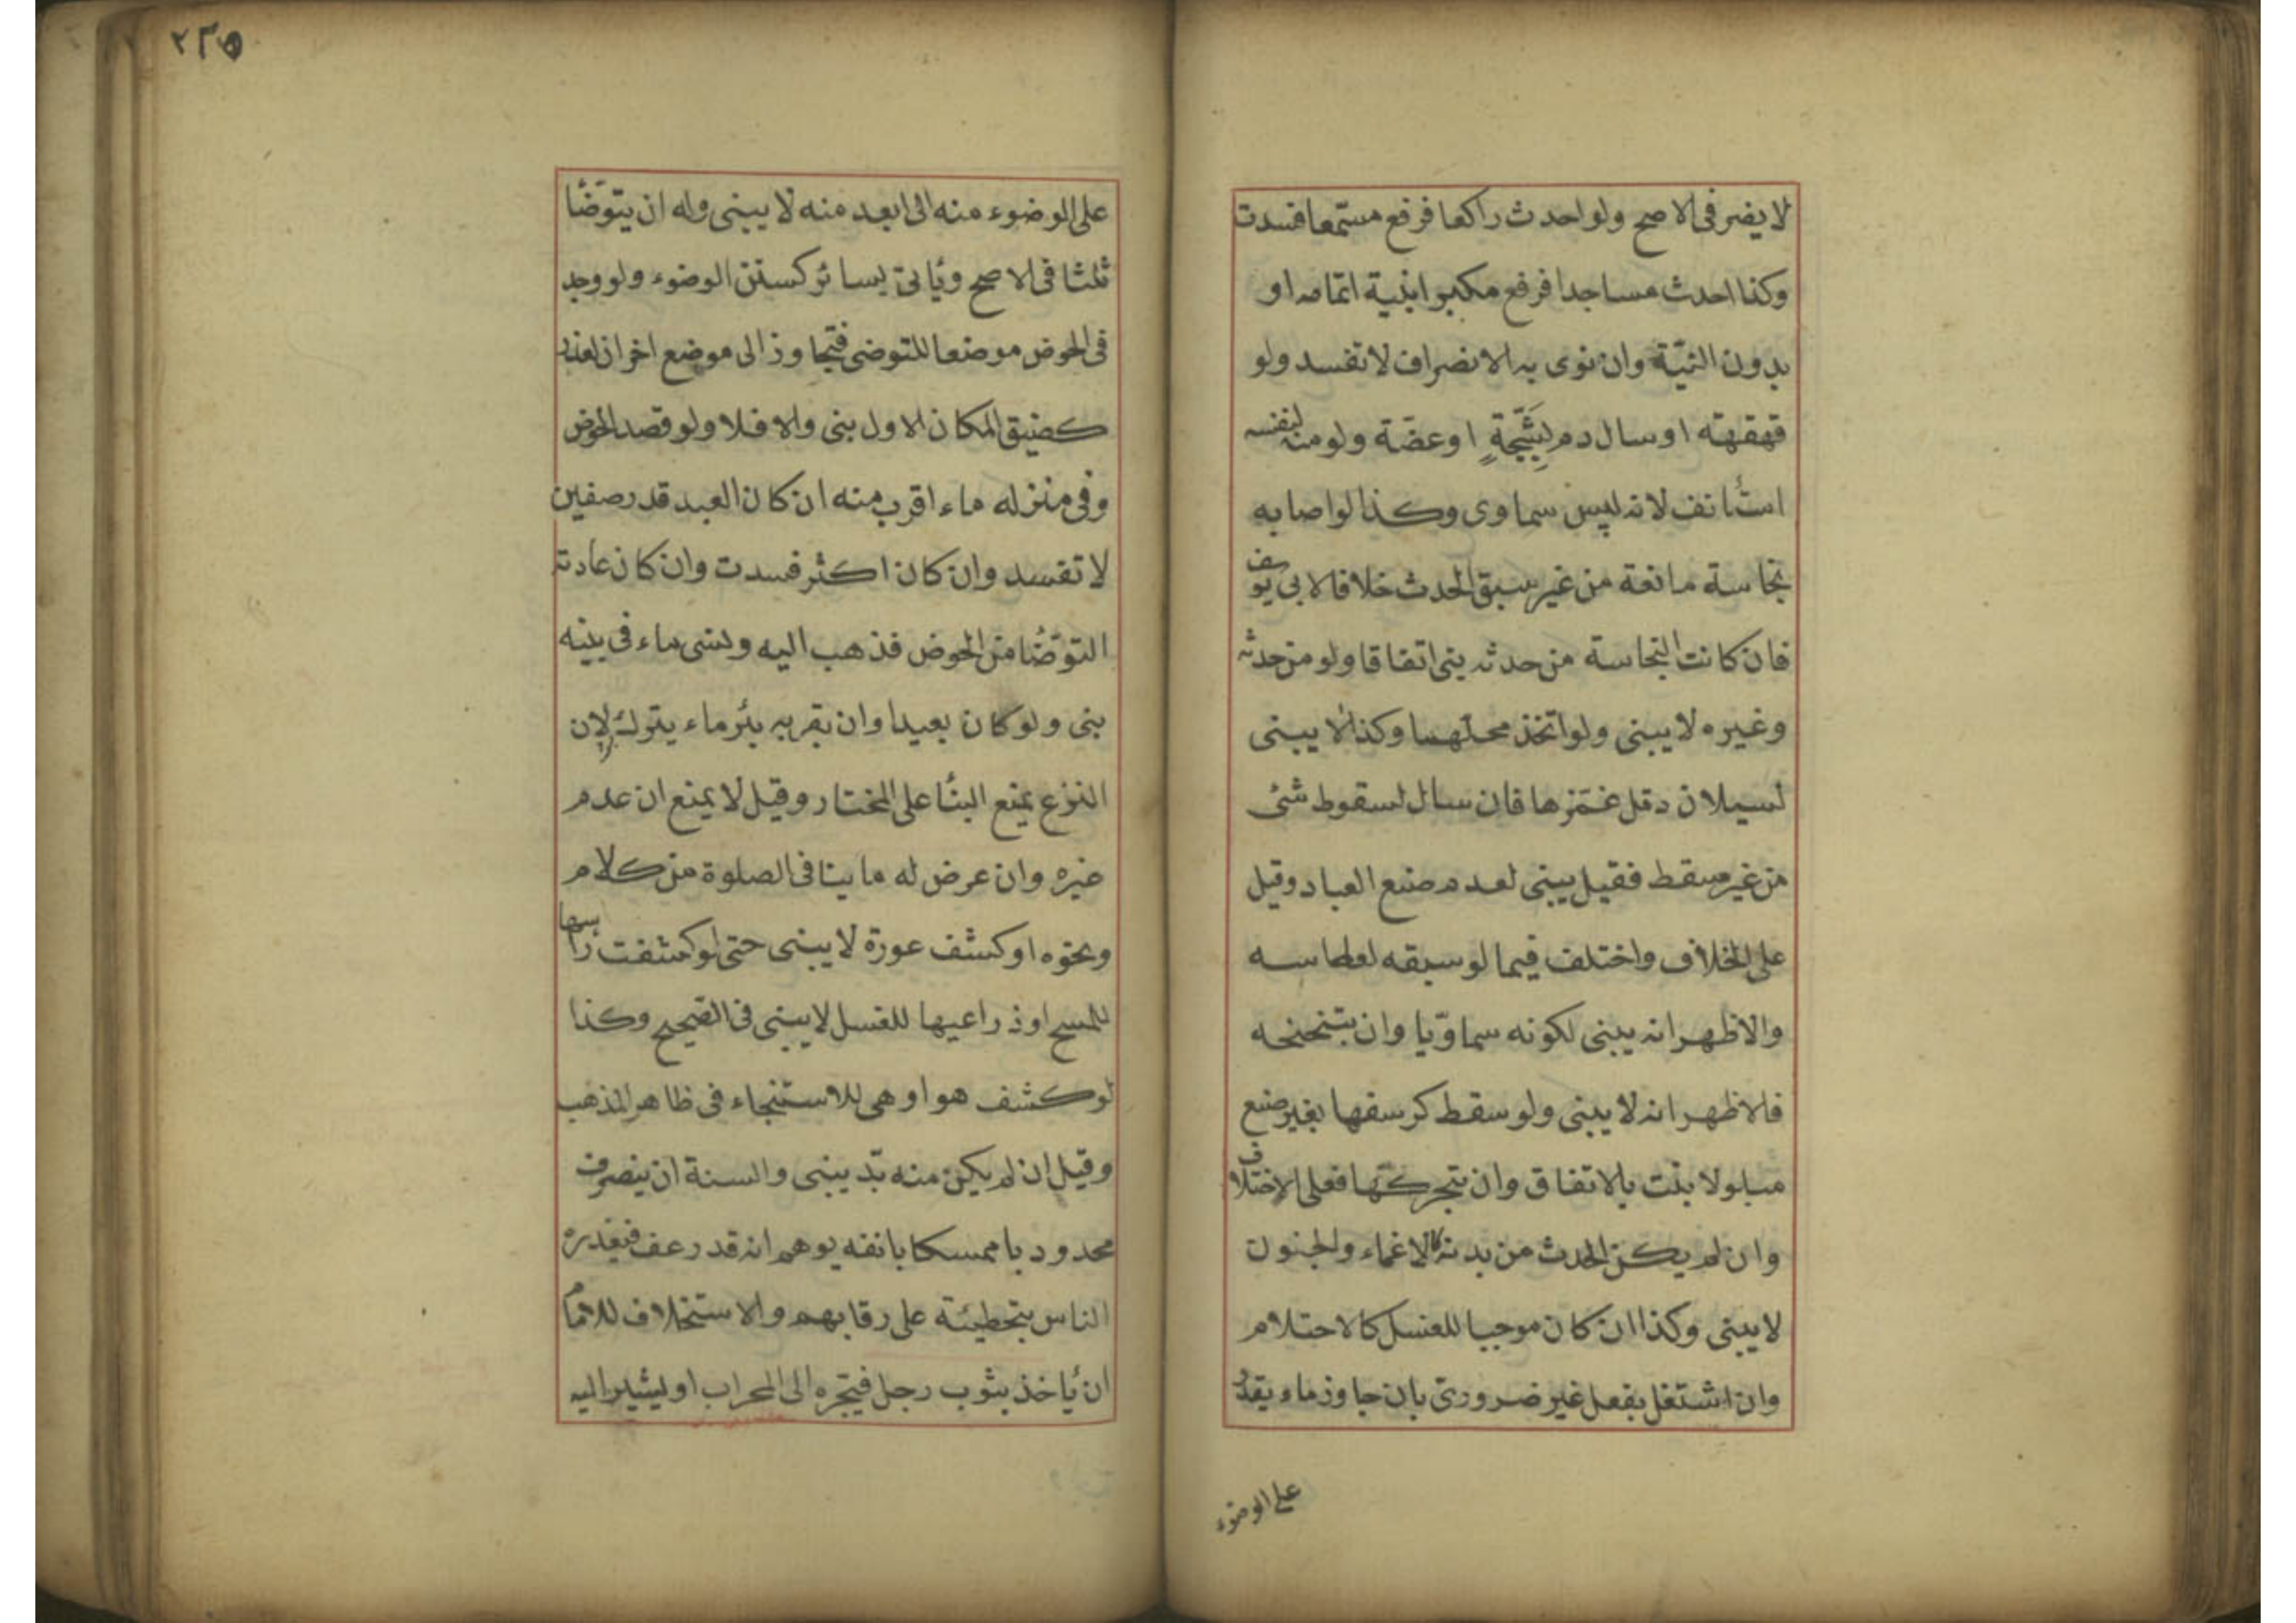 لا يضر فى الاصح ولو احدث راكعا فرفع مستمعا فسدت
وكذا احدث مساجدا فرفع مكبرا بنية اتمامه او
بدون النيّة وان نوى به الانصراف لا تفسد ولو
قهقهته او سال دم لِشَجّةٍ او عضّة ولو منه لنفسه
استأنف لانه ليس سماوى وكذا لو اصابه
نجاسة مانعة من غير سبق الحدث خلافا لابى يوسف
فان كانت النجاسة من حدثه بنى اتفاقا ولو من حدثه
وغيره لا يبنى ولو اتخذ محلهما وكذا لا يبنى
لسيلان دمل غمزها فان سال لسقوط شئ
من غير مسقط فقيل يبنى لعدم صنع العباد وقيل
على الخلاف واختلف فيما لو سبقه لعطاسه
والاظهر انه يبنى لكونه سماوّيا وان بتنحنحه
فالاظهر انه لا يبنى ولو سقط كرسفها بغير صنع
مبلولا بنت بالاتفاق وان بتحركتها فعلى الاختلاف
وان لم يكن الحدث من بدنه كالاغماء والجنون
لا يبنى وكذا ان كان موجبا للغسل كالاحتلام
وان اشتغل بفعل غير ضرورىّ بان جاوز ماء يقدر
على الوضوء
٢٣٥
على الوضوء منه الى ابعد منه لا يبنى وله ان يتوضّأ
ثلثا فى الاصح ويأتى بسائر كسنن الوضوء ولو وجد
فى الحوض موضعا للتوضى فتجاوز الى موضع اخر ان لعذر
كضيق المكان الاول بنى والا فلا ولو قصد الحوض
وفى منزله ماء اقرب منه ان كان البعد قدر صفين
لا تفسد وان كان اكثر فسدت وان كان عادته
التوضّأ من الحوض فذهب اليه ونسى ماء فى بيته
بنى ولو كان بعيدا وان بقربه بئر ماء يتركه لان
النزع يمنع البناء على المختار وقيل لا يمنع ان عدم
غيره وان عرض له ما ينافى الصلوة من كلام
ونحوه او كشف عورة لا يبنى حتى لو كشفت رأسها
للمسح او ذراعيها للغسل لا يبنى فى الصّحيح وكذا
لو كشف هو او هى للاستنجاء فى ظاهر المذهب
وقيل ان لم يكن منه بدّ يبنى والسنة ان ينصرف
محدودبا ممسكا بانفه يوهم انه قد رعف فيعذره
الناس بتخطيئه على رقابهم والاستخلاف للامام
ان يأخذ بثوب رجل فيجره الى المحراب او ليشير اليه